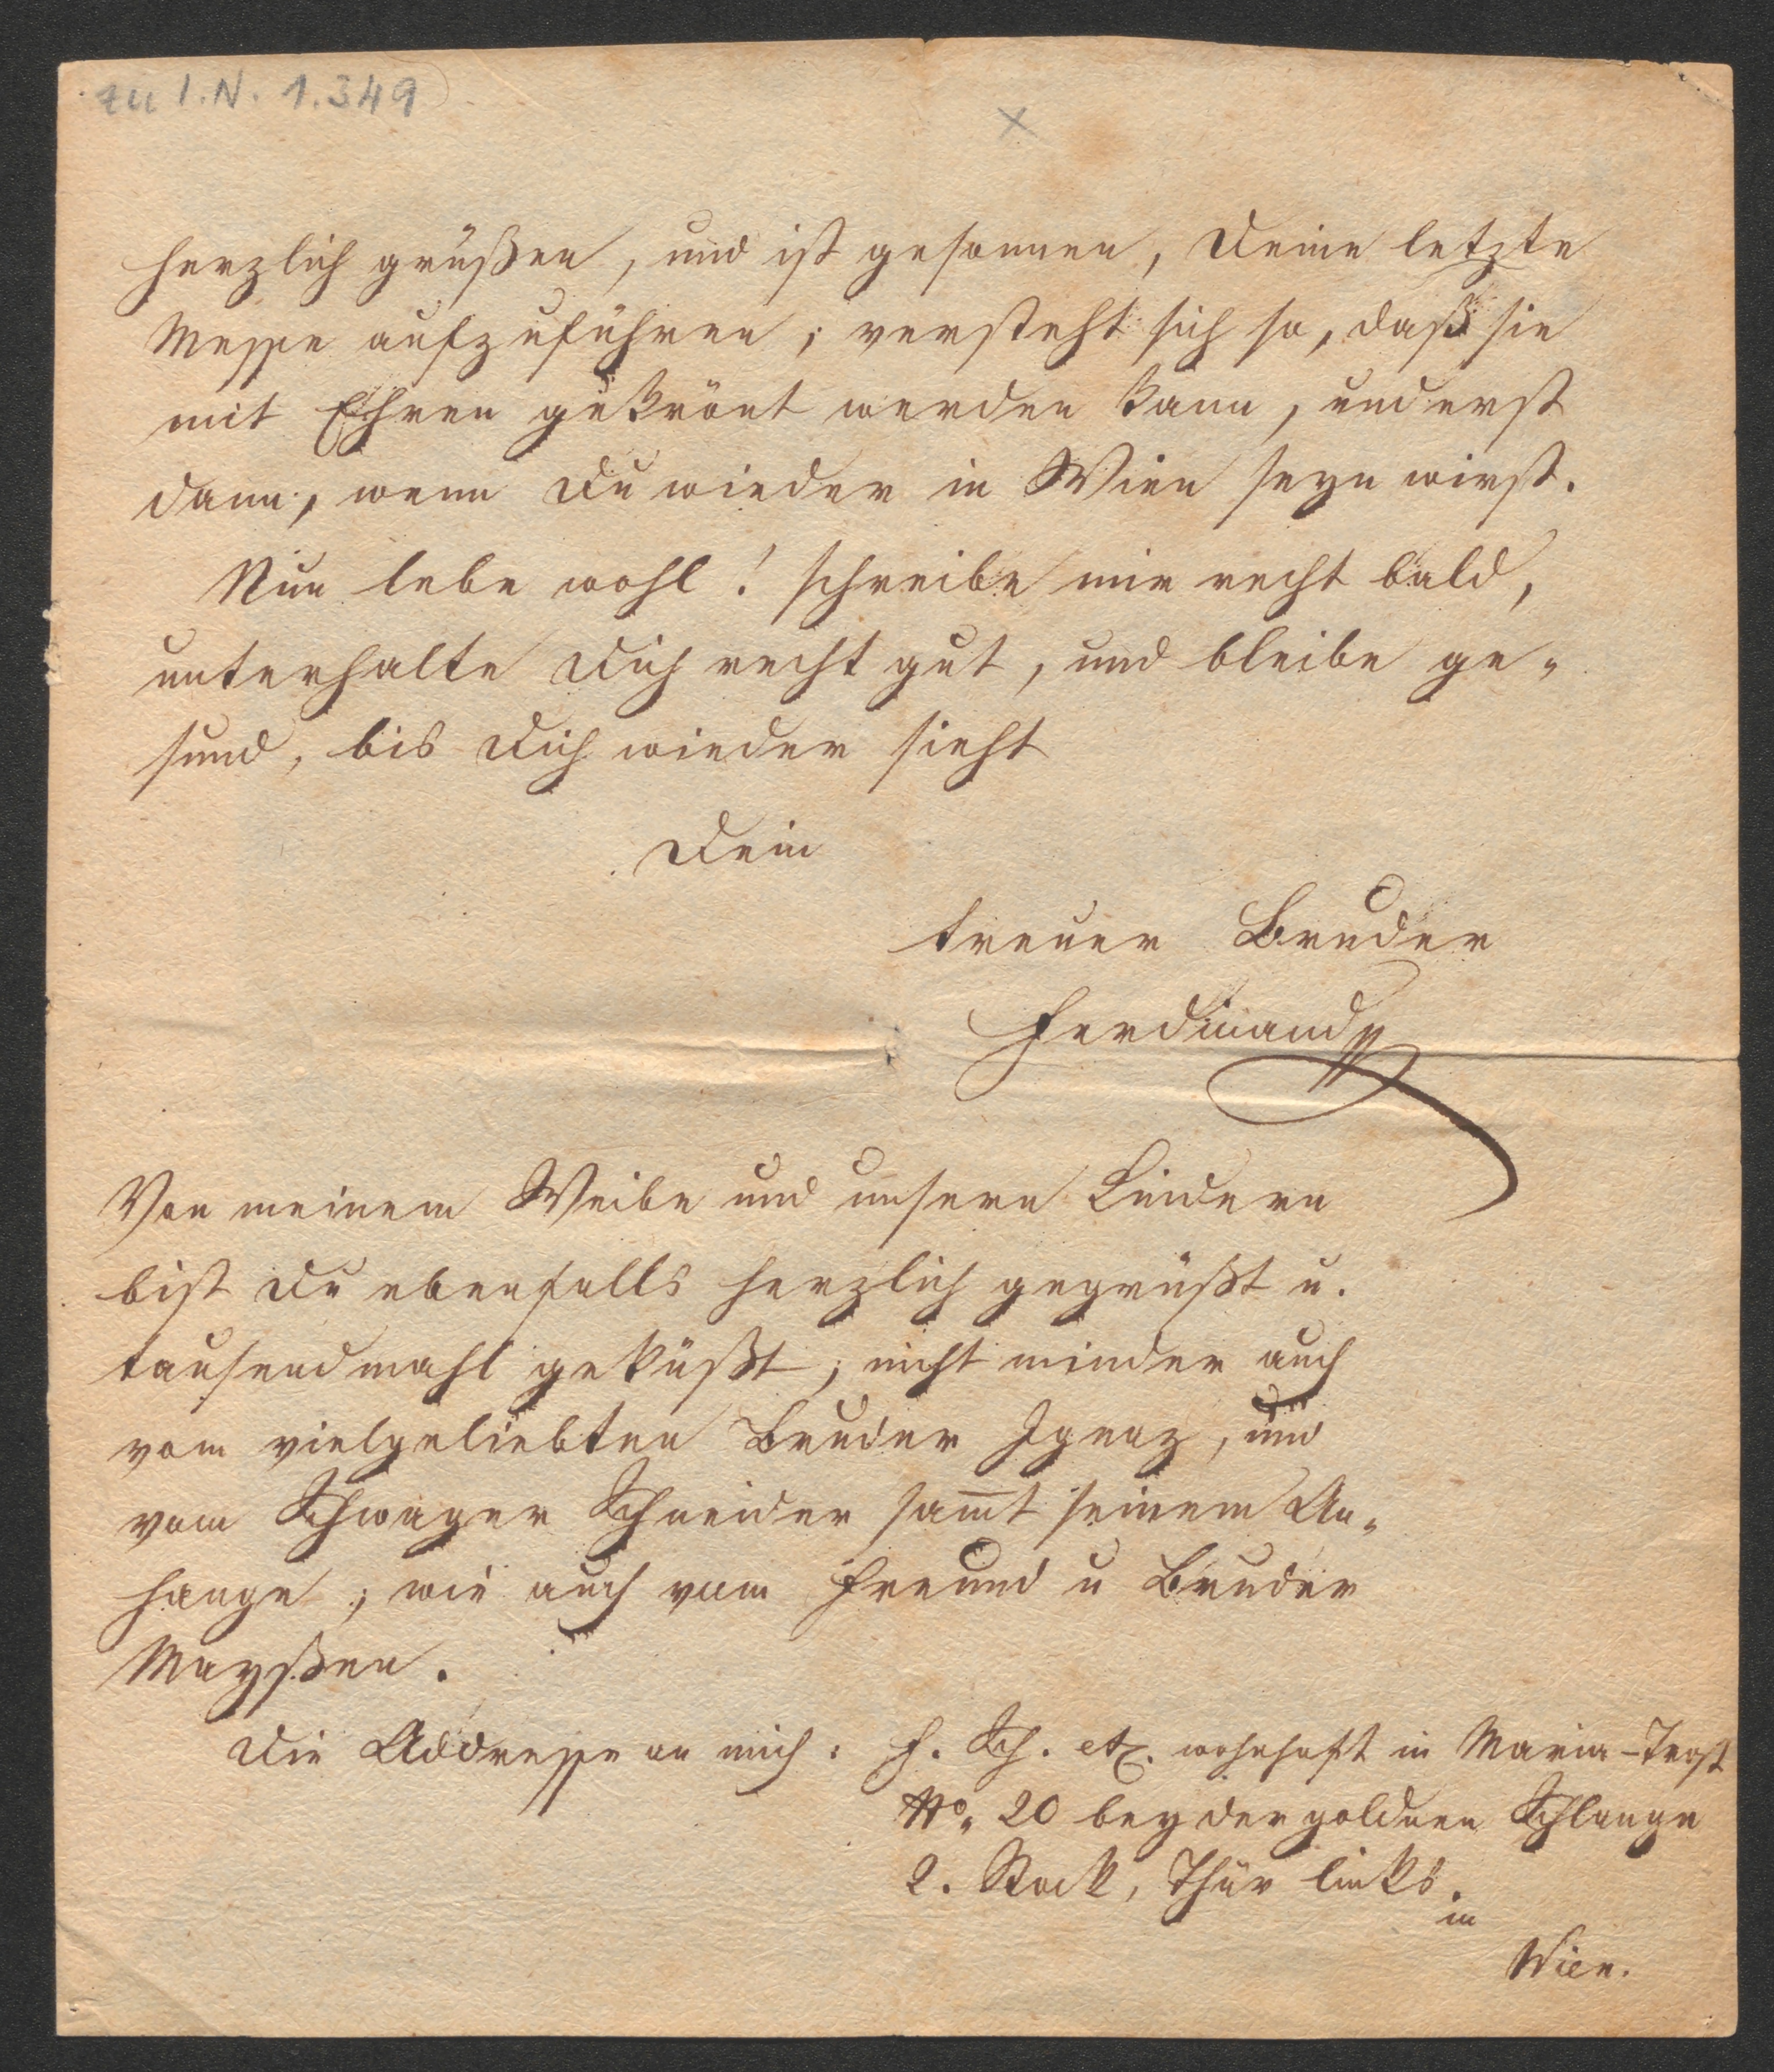 zu I.N. 1.349
x
herzlich grüßen, und ist gesonnen, Deine letzte
Messe aufzuführen; versteht sich so, daß sie
mit Ehren gekrönt werden kann, und erst
dann, wenn Du wieder in Wien seyn wirst.
Nun lebe wohl! schreibe mir recht bald,
unterhalte Dich recht gut, und bleibe ge-
sund, bis Dich wieder sieht
Dein
treuer Bruder
Ferdinand
Von meinem Weibe und unsern Kindern
bist Du ebenfalls herzlich gegrüßt u.
tausendmahl geküßt; nicht minder auch
vom vielgeliebten Bruder Ignaz, und
vom Schwager Schneider sam̅t seinem An-
hange; wie auch vom Freund u Bruder
Mayßen.
Die Addresse an mich: F. Sch. etc. wohnhaft in Maria-Trost
No. 20 bey der goldnen Schlange
2. Stock, Thür links.
in
Wien.